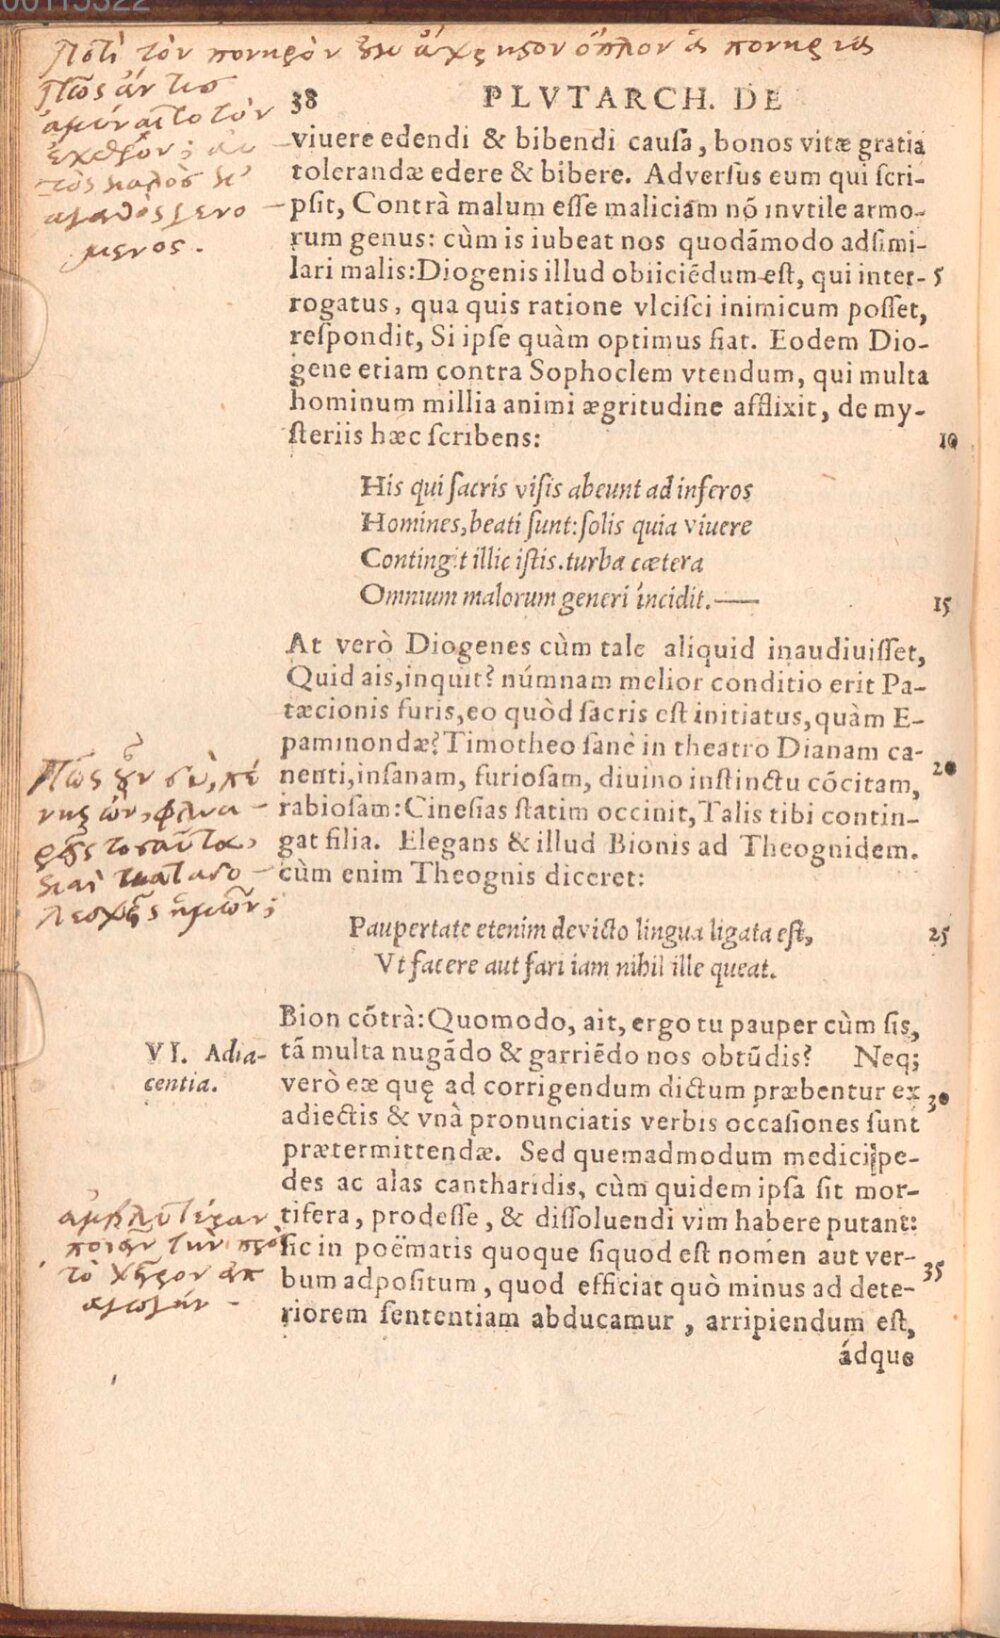 Ποτὶ τὸν πονηρὸν οὐκ ἄχρηστον ὅπλον ἁ πονηρία
Πῶς ἄν τις
ἀμύναιτο τὸν
ἐχθρόν; αὐ
τὸς καλὸς κ'
ἀγαθὸς γενό
μενος.
38 PLVTARCH. DE
viuere edendi & bibendi causa, bonos vitæ gratia
tolerandæ edere & bibere. Aduersus eum qui scri-
psit, Contrà malum esse maliciam nõ invtile armo-
rum genus: cùm is iubeat nos quodãmodo adsimi-
lari malis: Diogenis illud obiiciẽdum est, qui inter- 5
rogatus, qua quis ratione vlcisci inimicum posset,
respondit, Si ipse quàm optimus fiat. Eodem Dio-
gene etiam contra Sophoclem vtendum, qui multa
hominum millia animi ægritudine afflixit, de my-
steriis hæc scribens: 10
His qui sacris visis abeunt ad inferos
Homines, beati sunt: solis quia viuere
Contingit illic istis. turba cætera
Omnium malorum generi incidit.—— 15
At verò Diogenes cùm tale aliquid inaudiuisset,
Quid ais, inquit? númnam melior conditio erit Pa-
tæcionis furis, eo quòd sacris est initiatus, quàm E-
paminondæ? Timotheo sanè in theatro Dianam ca-
nenti, insanam, furiosam, diuino instinctu cõcitam, 20
rabiosam: Cinesias statim occinit, Talis tibi contin-
gat filia. Elegans & illud Bionis ad Theognidem.
cùm enim Theognis diceret:
Πῶς οὖν σὺ, πέ
νης ὢν, φλυα
ρεῖς τοσαῦτα,
καὶ καταδο
λεσχεῖς ἡμῶν;
Paupertate etenim deuicto lingua ligata est, 25
Vt facere aut fari iam nihil ille queat.
Bion cõtrà: Quomodo, ait, ergo tu pauper cùm sis,
tã multa nugãdo & garriẽdo nos obtũdis? Neq;
VI. Adia-
centia.
verò eæ quę ad corrigendum dictum præbentur ex 30
adiectis & vnà pronunciatis verbis occasiones sunt
prætermittendæ. Sed quemadmodum medici pe-
des ac alas cantharidis, cùm quidem ipsa sit mor-
tifera, prodesse, & dissoluendi vim habere putant:
sic in poëmatis quoque siquod est nomen aut ver-
bum adpositum, quod efficiat quò minus ad dete- 35
riorem sententiam abducamur, arripiendum est,
ádque
ἀμβλυτέραν
ποιεῖν τὴν πρὸς
τὸ χεῖρον ἀπ
αγωγήν